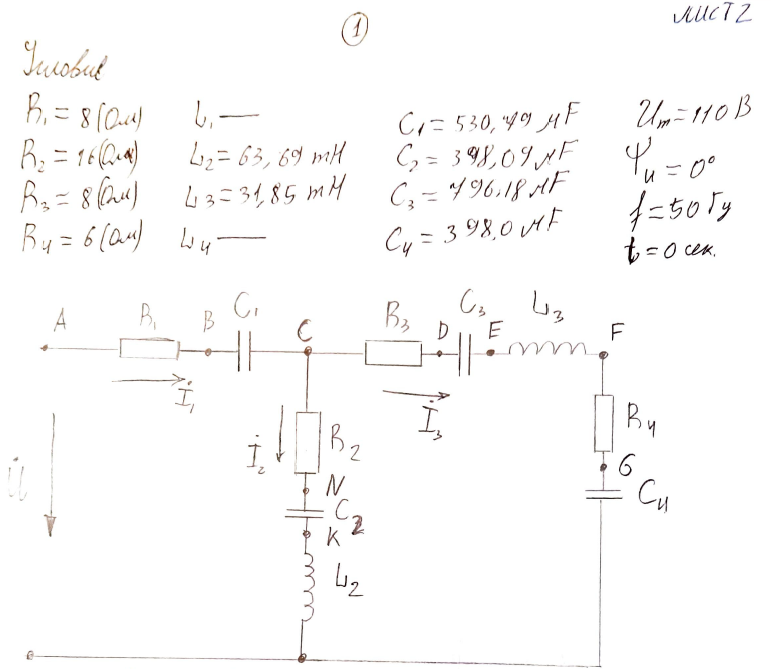 ЛИСТ 2
1
Условие
R₁ = 8 (Ом) L₁ — C₁ = 530,79 μF Uₘ = 110 В
R₂ = 16 (Ом) L₂ = 63,69 mH C₂ = 398,09 μF Ψᵤ = 0°
R₃ = 8 (Ом) L₃ = 31,85 mH C₃ = 796,18 μF f = 50 Гц
R₄ = 6 (Ом) L₄ — C₄ = 398,0 μF t₀ = 0 сек.
A R₁ B C₁ C R₃ D C₃ E L₃ F
İ₁ İ₃
U̇ İ₂ R₂ R₄
N G
C₂ C₄
K
L₂